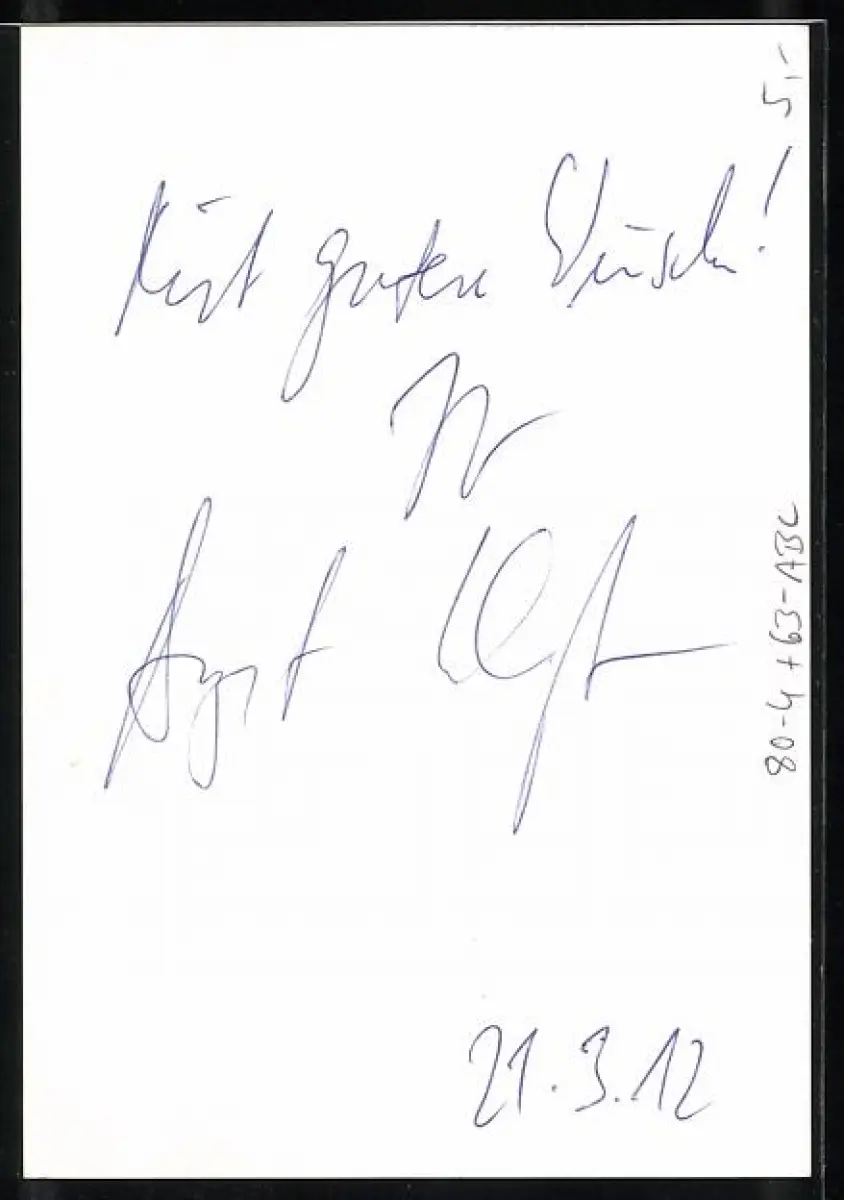 5,-
Mit guten Wünschen!
Ihr
August
21.3.12
80-4+63-ABC